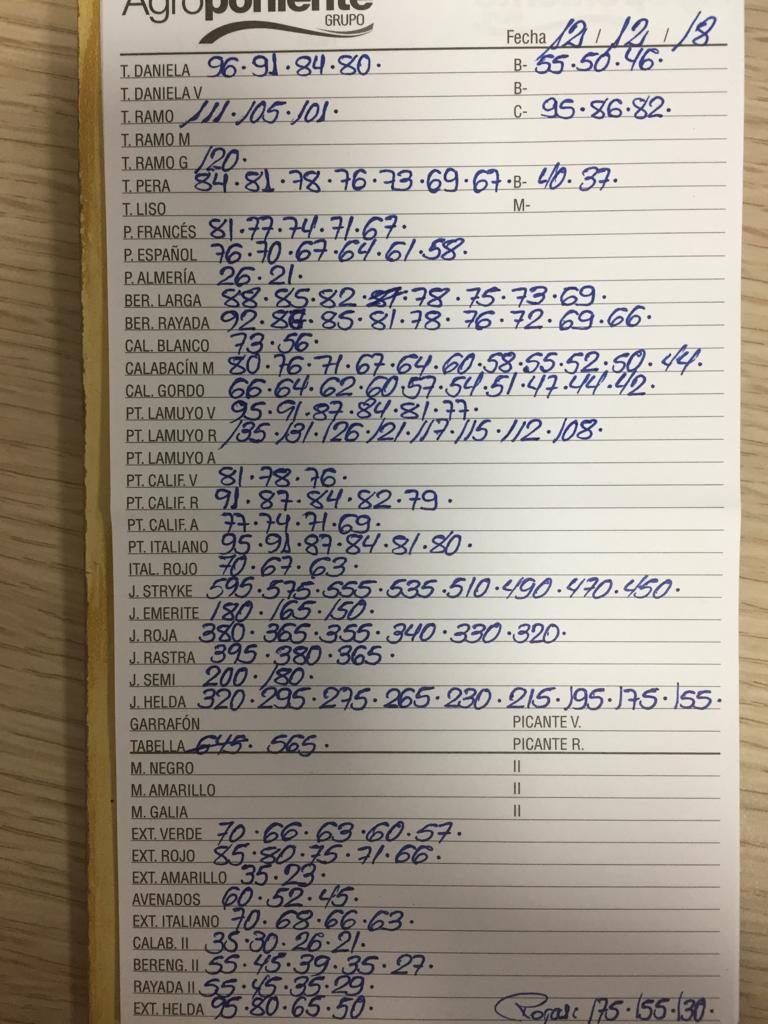 Agroponiente
GRUPO
Fecha 12 / 12 / 18
T. DANIELA 96·91·84·80· B- 55·50·46·
T. DANIELA V B-
T. RAMO 111·105·101· C- 95·86·82·
T. RAMO M
T. RAMO G 120·
T. PERA 84·81·78·76·73·69·67· B- 40·37·
T. LISO M-
P. FRANCÉS 81·77·74·71·67·
P. ESPAÑOL 76·70·67·64·61·58·
P. ALMERÍA 26·21·
BER. LARGA 88·85·82·78·75·73·69·
BER. RAYADA 92·86·85·81·78·76·72·69·66·
CAL. BLANCO 73·56·
CALABACÍN M 80·76·71·67·64·60·58·55·52·50·44·
CAL. GORDO 66·64·62·60·57·54·51·47·44·42·
PT. LAMUYO V 95·91·87·84·81·77·
PT. LAMUYO R 135·131·126·121·117·115·112·108·
PT. LAMUYO A
PT. CALIF. V 81·78·76·
PT. CALIF. R 91·87·84·82·79·
PT. CALIF. A 77·74·71·69·
PT. ITALIANO 95·91·87·84·81·80·
ITAL. ROJO 70·67·63·
J. STRYKE 595·575·555·535·510·490·470·450·
J. EMERITE 180·165·150·
J. ROJA 380·365·355·340·330·320·
J. RASTRA 395·380·365·
J. SEMI 200·180·
J. HELDA 320·295·275·265·230·215·195·175·155·
GARRAFÓN PICANTE V.
TABELLA 645· 565· PICANTE R.
M. NEGRO II
M. AMARILLO II
M. GALIA II
EXT. VERDE 70·66·63·60·57·
EXT. ROJO 85·80·75·71·66·
EXT. AMARILLO 35·23·
AVENADOS 60·52·45·
EXT. ITALIANO 70·68·66·63·
CALAB. II 35·30·26·21·
BERENG. II 55·45·39·35·27·
RAYADA II 55·45·35·29·
EXT. HELDA 95·80·65·50· 175·155·130·